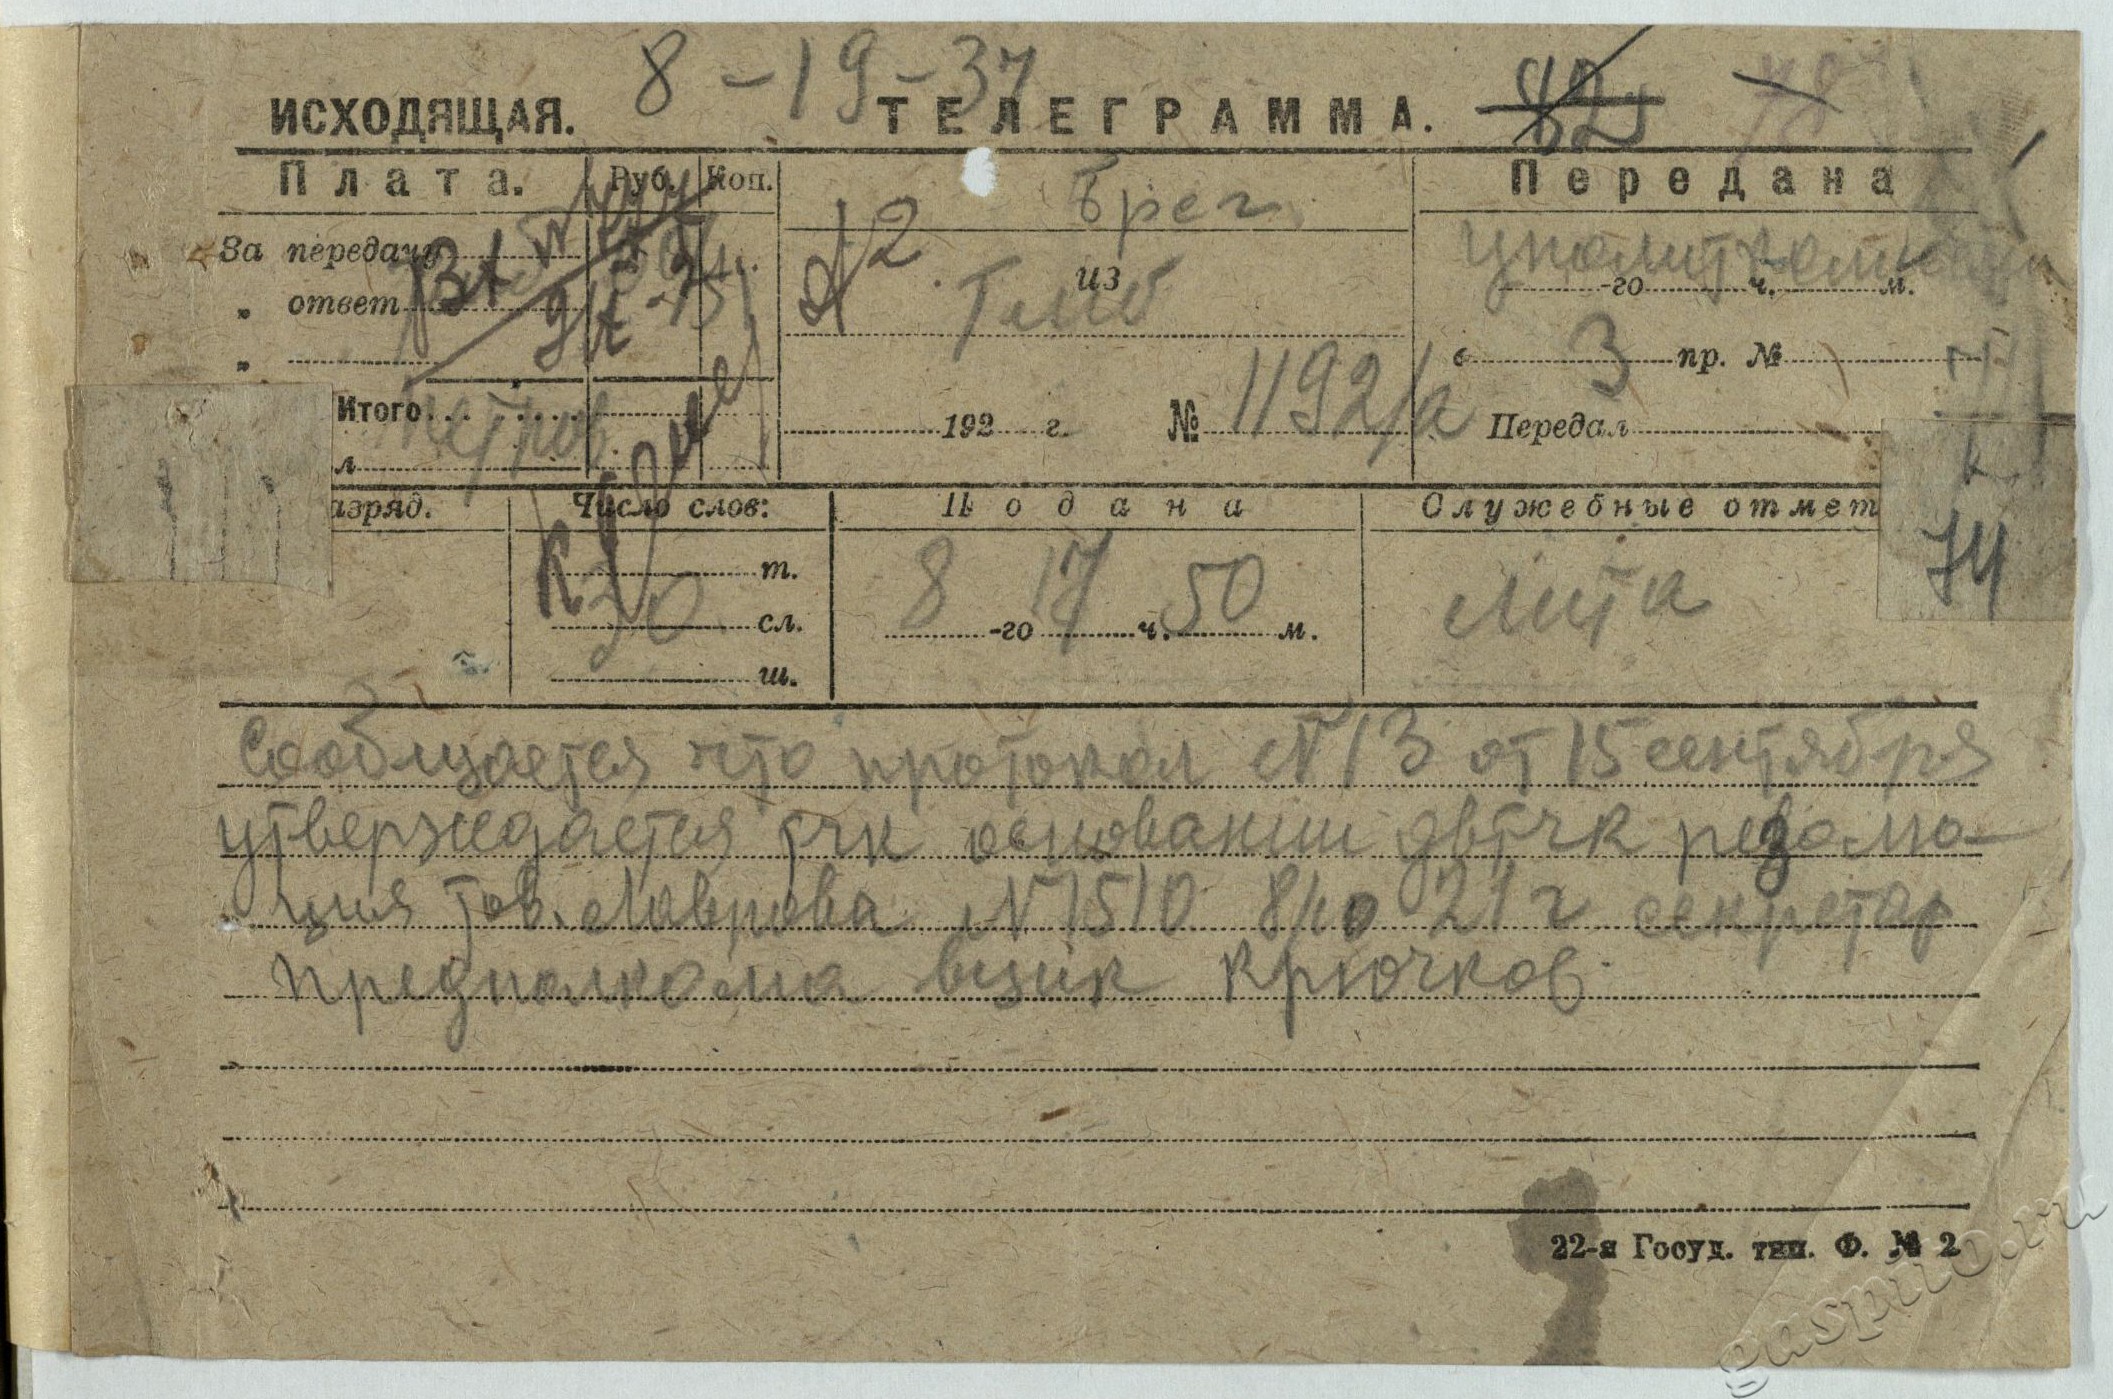 8-19-37
ИСХОДЯЩАЯ. ТЕЛЕГРАММА. 82
Плата. Руб. Коп.
Передана
За передачу
„ ответ
„
Итого...
л
№ 2
Брег
из
192 г. № 1192/а
-го ч. м.
с 3 пр. №
Передал
74
азряд.
Число слов:
Подана
Служебные отмет
т.
30 сл.
ш.
8-го 17 ч. 50 м.
лита
Сообщается что протокол №13 от 15 сентября
утверждается тчк основании двтчк резолю-
ция тов. Лаврова №1510 8/10 21 г секретар
предполкома вцик крючков
22-я Госуд. тип. Ф. № 2
gaspito.ru